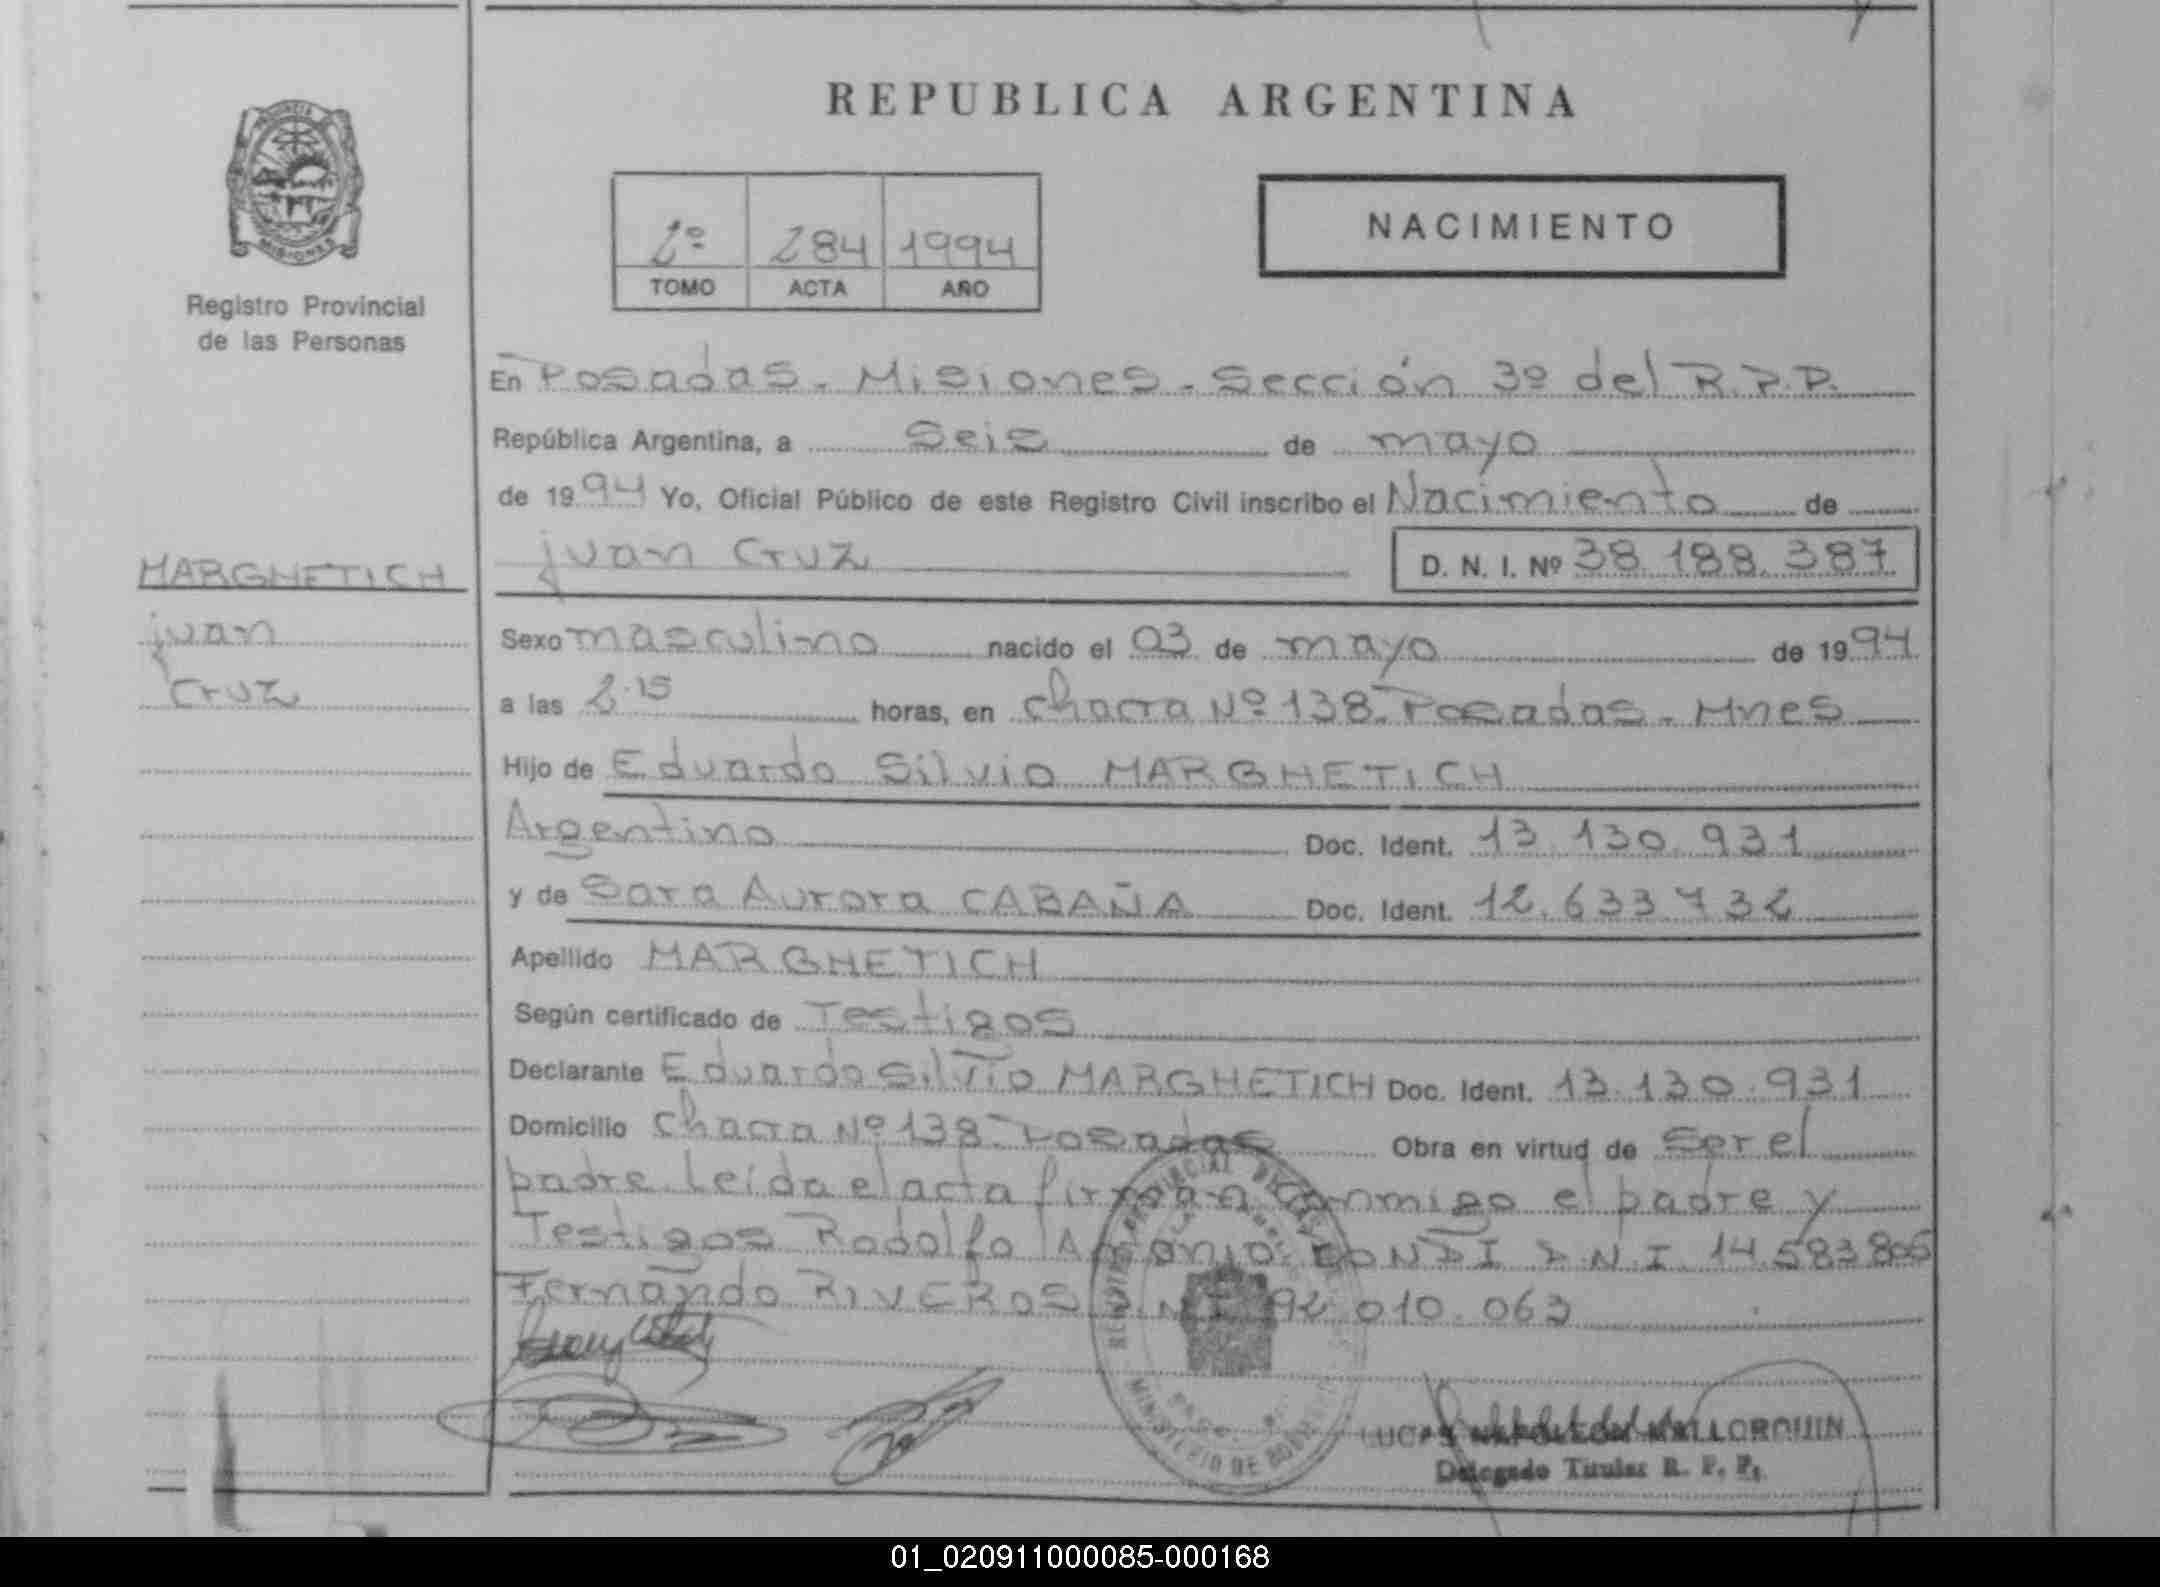 REPUBLICA ARGENTINA
PROVINCIA
MISIONES
Registro Provincial
de las Personas
2º 284 1994
TOMO ACTA AÑO
NACIMIENTO
En Posadas - Misiones - Sección 3º del R.P.P.
República Argentina, a Seis de mayo
de 1994 Yo, Oficial Público de este Registro Civil inscribo el Nacimiento de
juan Cruz D. N. I. Nº 38.188.387
MARGHETICH
juan
Cruz
Sexo masculino nacido el 03 de mayo de 1994
a las 2.15 horas, en chacra Nº 138. Posadas - Mnes
Hijo de Eduardo Silvio MARGHETICH
Argentino Doc. Ident. 13.130.931
y de Sara Aurora CABAÑA Doc. Ident. 12.633.732
Apellido MARGHETICH
Según certificado de Testigos
Declarante Eduardo Silvio MARGHETICH Doc. Ident. 13.130.931
Domicilio chacra Nº 138. Posadas Obra en virtud de ser el
padre. Leida el acta firman conmigo el padre y
Testigos Rodolfo Antonio D.N.I. 14.583.805
Fernando RIVEROS D.N.I. 92.010.063
LUCAS NAPOLEON MALLORQUIN
Delegado Titular R. P. P.
01_020911000085-000168